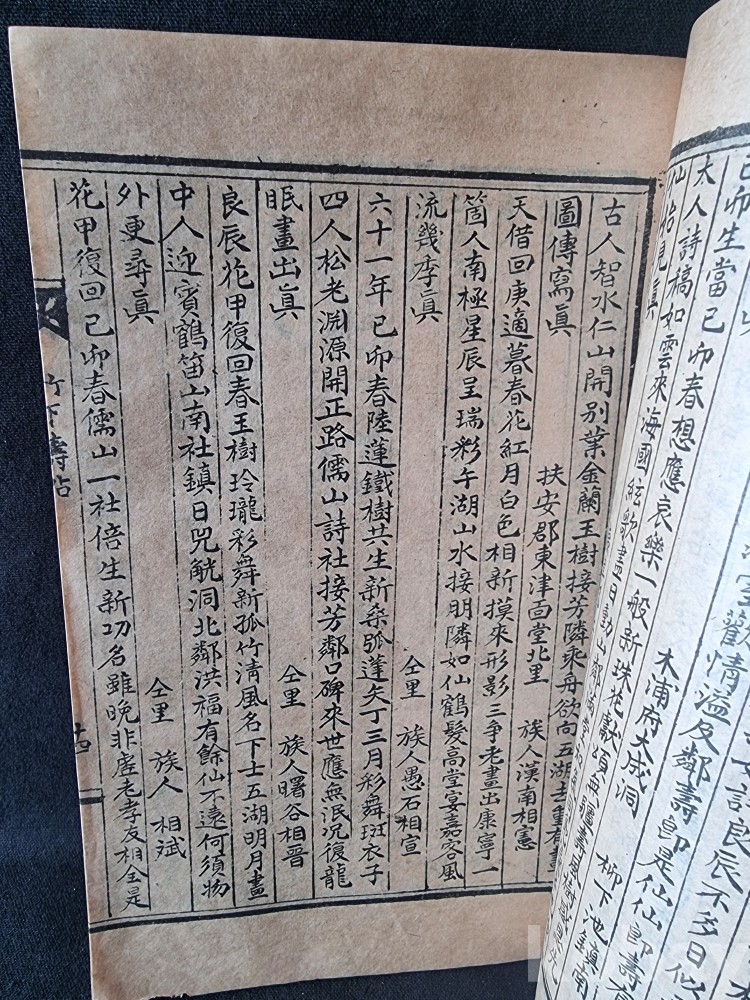 勸情溢及鄰壽卽是仙仙卽壽
良辰不多日似
木浦府大成洞 柳下池鎮南
己卯生當己卯春想應哀樂一般新珠花獻頌無疆壽
大人詩稿如雲來海國絃歌盡日動山
仙始見眞
古人智水仁山開別業金蘭玉樹接芳隣乘舟欲向五湖去畫有畫
圖傳寫眞 扶安郡東津面堂北里 族人漢南相憲
天借回庚適暮春花紅月白色相新摸來形影三爭老畫出康寧一
箇人南極星辰呈瑞彩午湖山水接明隣如仙鶴髮高堂宴嘉客風
流幾季眞 仝里 族人愚石相宣
六十一年己卯春陸蓮鐵樹共生新桑弧蓬矢丁三月彩舞斑衣子
四人松老淵源開正路儒山詩社接芳鄰口碑來世應無泯况復龍
眠畫出眞 仝里 族人曙谷相晉
良辰花甲復回春玉樹玲瓏彩舞新孤竹清風名下士五湖明月畫
中人迎賓鶴笛山南社鎮日兕觥洞北鄰洪福有餘仙不遠何須物
外更尋眞 仝里 族人 相斌
花甲復回己卯春儒山一社倍生新功名雖晚非虛老孝友相全是
竹下壽帖 十四